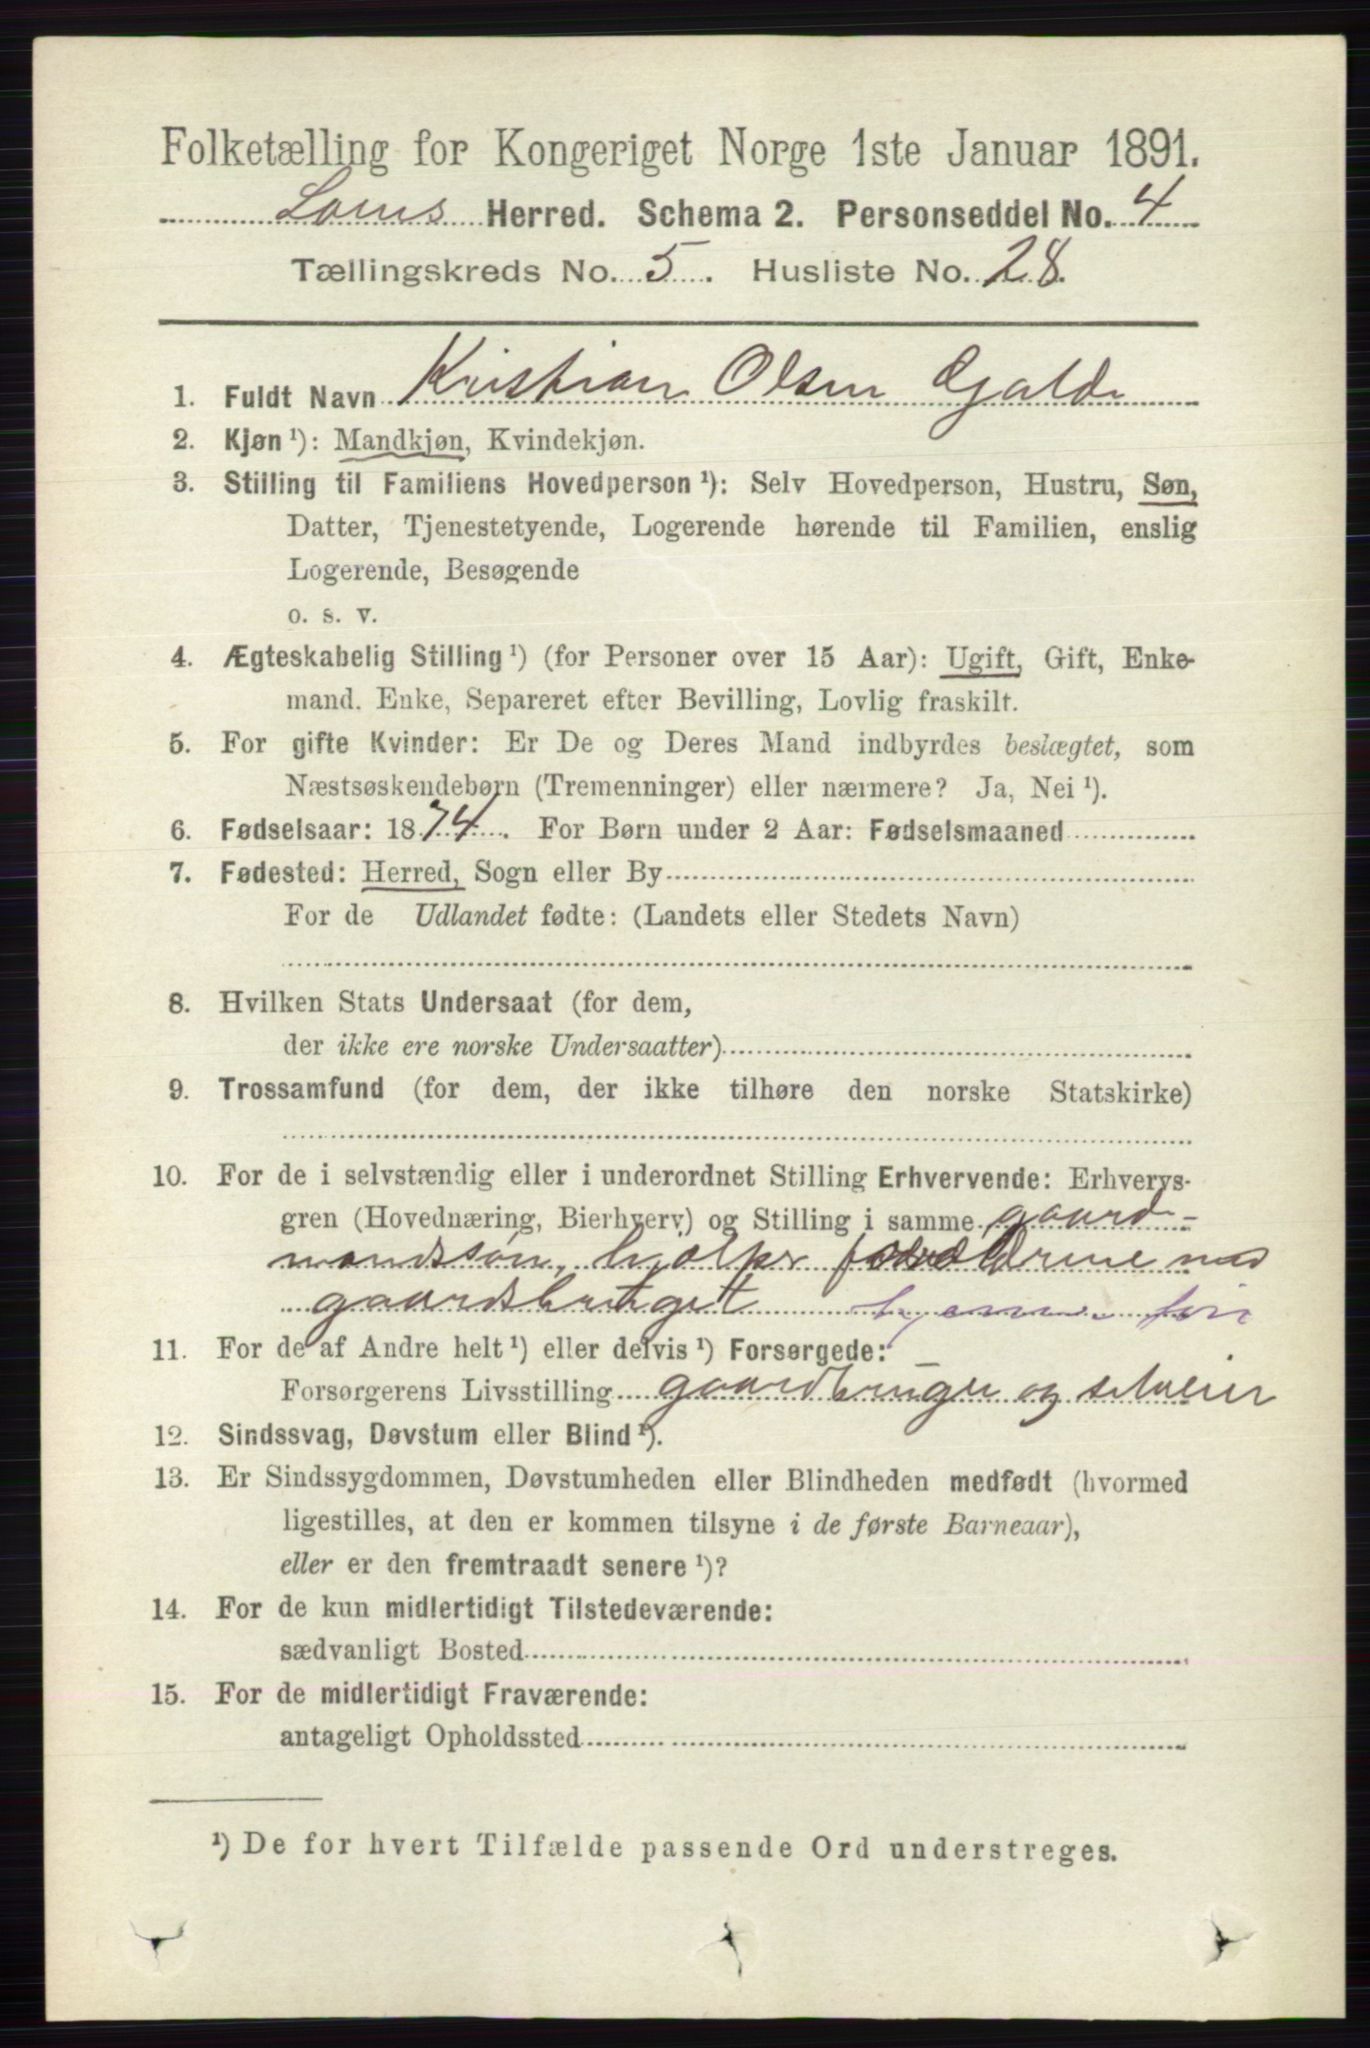 Folketælling for Kongeriget Norge 1ste Januar 1891.
Loms Herred. Schema 2. Personseddel No. 4
Tællingskreds No. 5. Husliste No. 28.
1. Fuldt Navn Kristian Olsen Galde
2. Kjøn ¹): Mandkjøn, Kvindekjøn.
3. Stilling til Familiens Hovedperson ¹): Selv Hovedperson, Hustru, Søn,
Datter, Tjenestetyende, Logerende hørende til Familien, enslig
Logerende, Besøgende
o. s. v.
4. Ægteskabelig Stilling ¹) (for Personer over 15 Aar): Ugift, Gift, Enke-
mand, Enke, Separeret efter Bevilling, Lovlig fraskilt.
5. For gifte Kvinder: Er De og Deres Mand indbyrdes beslægtet, som
Næstsøskendebørn (Tremenninger) eller nærmere? Ja, Nei ¹).
6. Fødselsaar: 1874. For Børn under 2 Aar: Fødselsmaaned
7. Fødested: Herred, Sogn eller By
For de Udlandet fødte: (Landets eller Stedets Navn)
8. Hvilken Stats Undersaat (for dem,
der ikke ere norske Undersaatter)
9. Trossamfund (for dem, der ikke tilhøre den norske Statskirke)
10. For de i selvstændig eller i underordnet Stilling Erhvervende: Erhvervs-
gren (Hovednæring, Bierhverv) og Stilling i samme gaard-
mandssøn, hjælper forældrene med
gaardsbruget
11. For de af Andre helt ¹) eller delvis ¹) Forsørgede:
Forsørgerens Livsstilling gaardbruger og selveier
12. Sindssvag, Døvstum eller Blind ¹).
13. Er Sindssygdommen, Døvstumheden eller Blindheden medfødt (hvormed
ligestilles, at den er kommen tilsyne i de første Barneaar),
eller er den fremtraadt senere ¹)?
14. For de kun midlertidigt Tilstedeværende:
sædvanligt Bosted
15. For de midlertidigt Fraværende:
antageligt Opholdssted
¹) De for hvert Tilfælde passende Ord understreges.